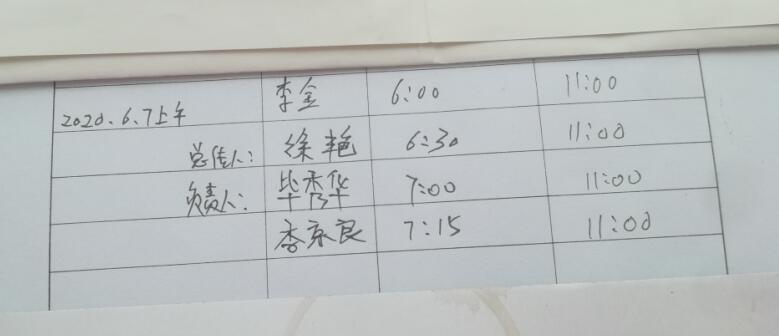 2020.6.7上午 李金 6:00 11:00
总佳人: 徐艳 6:30 11:00
负责人: 毕秀华 7:00 11:00
李京良 7:15 11:00